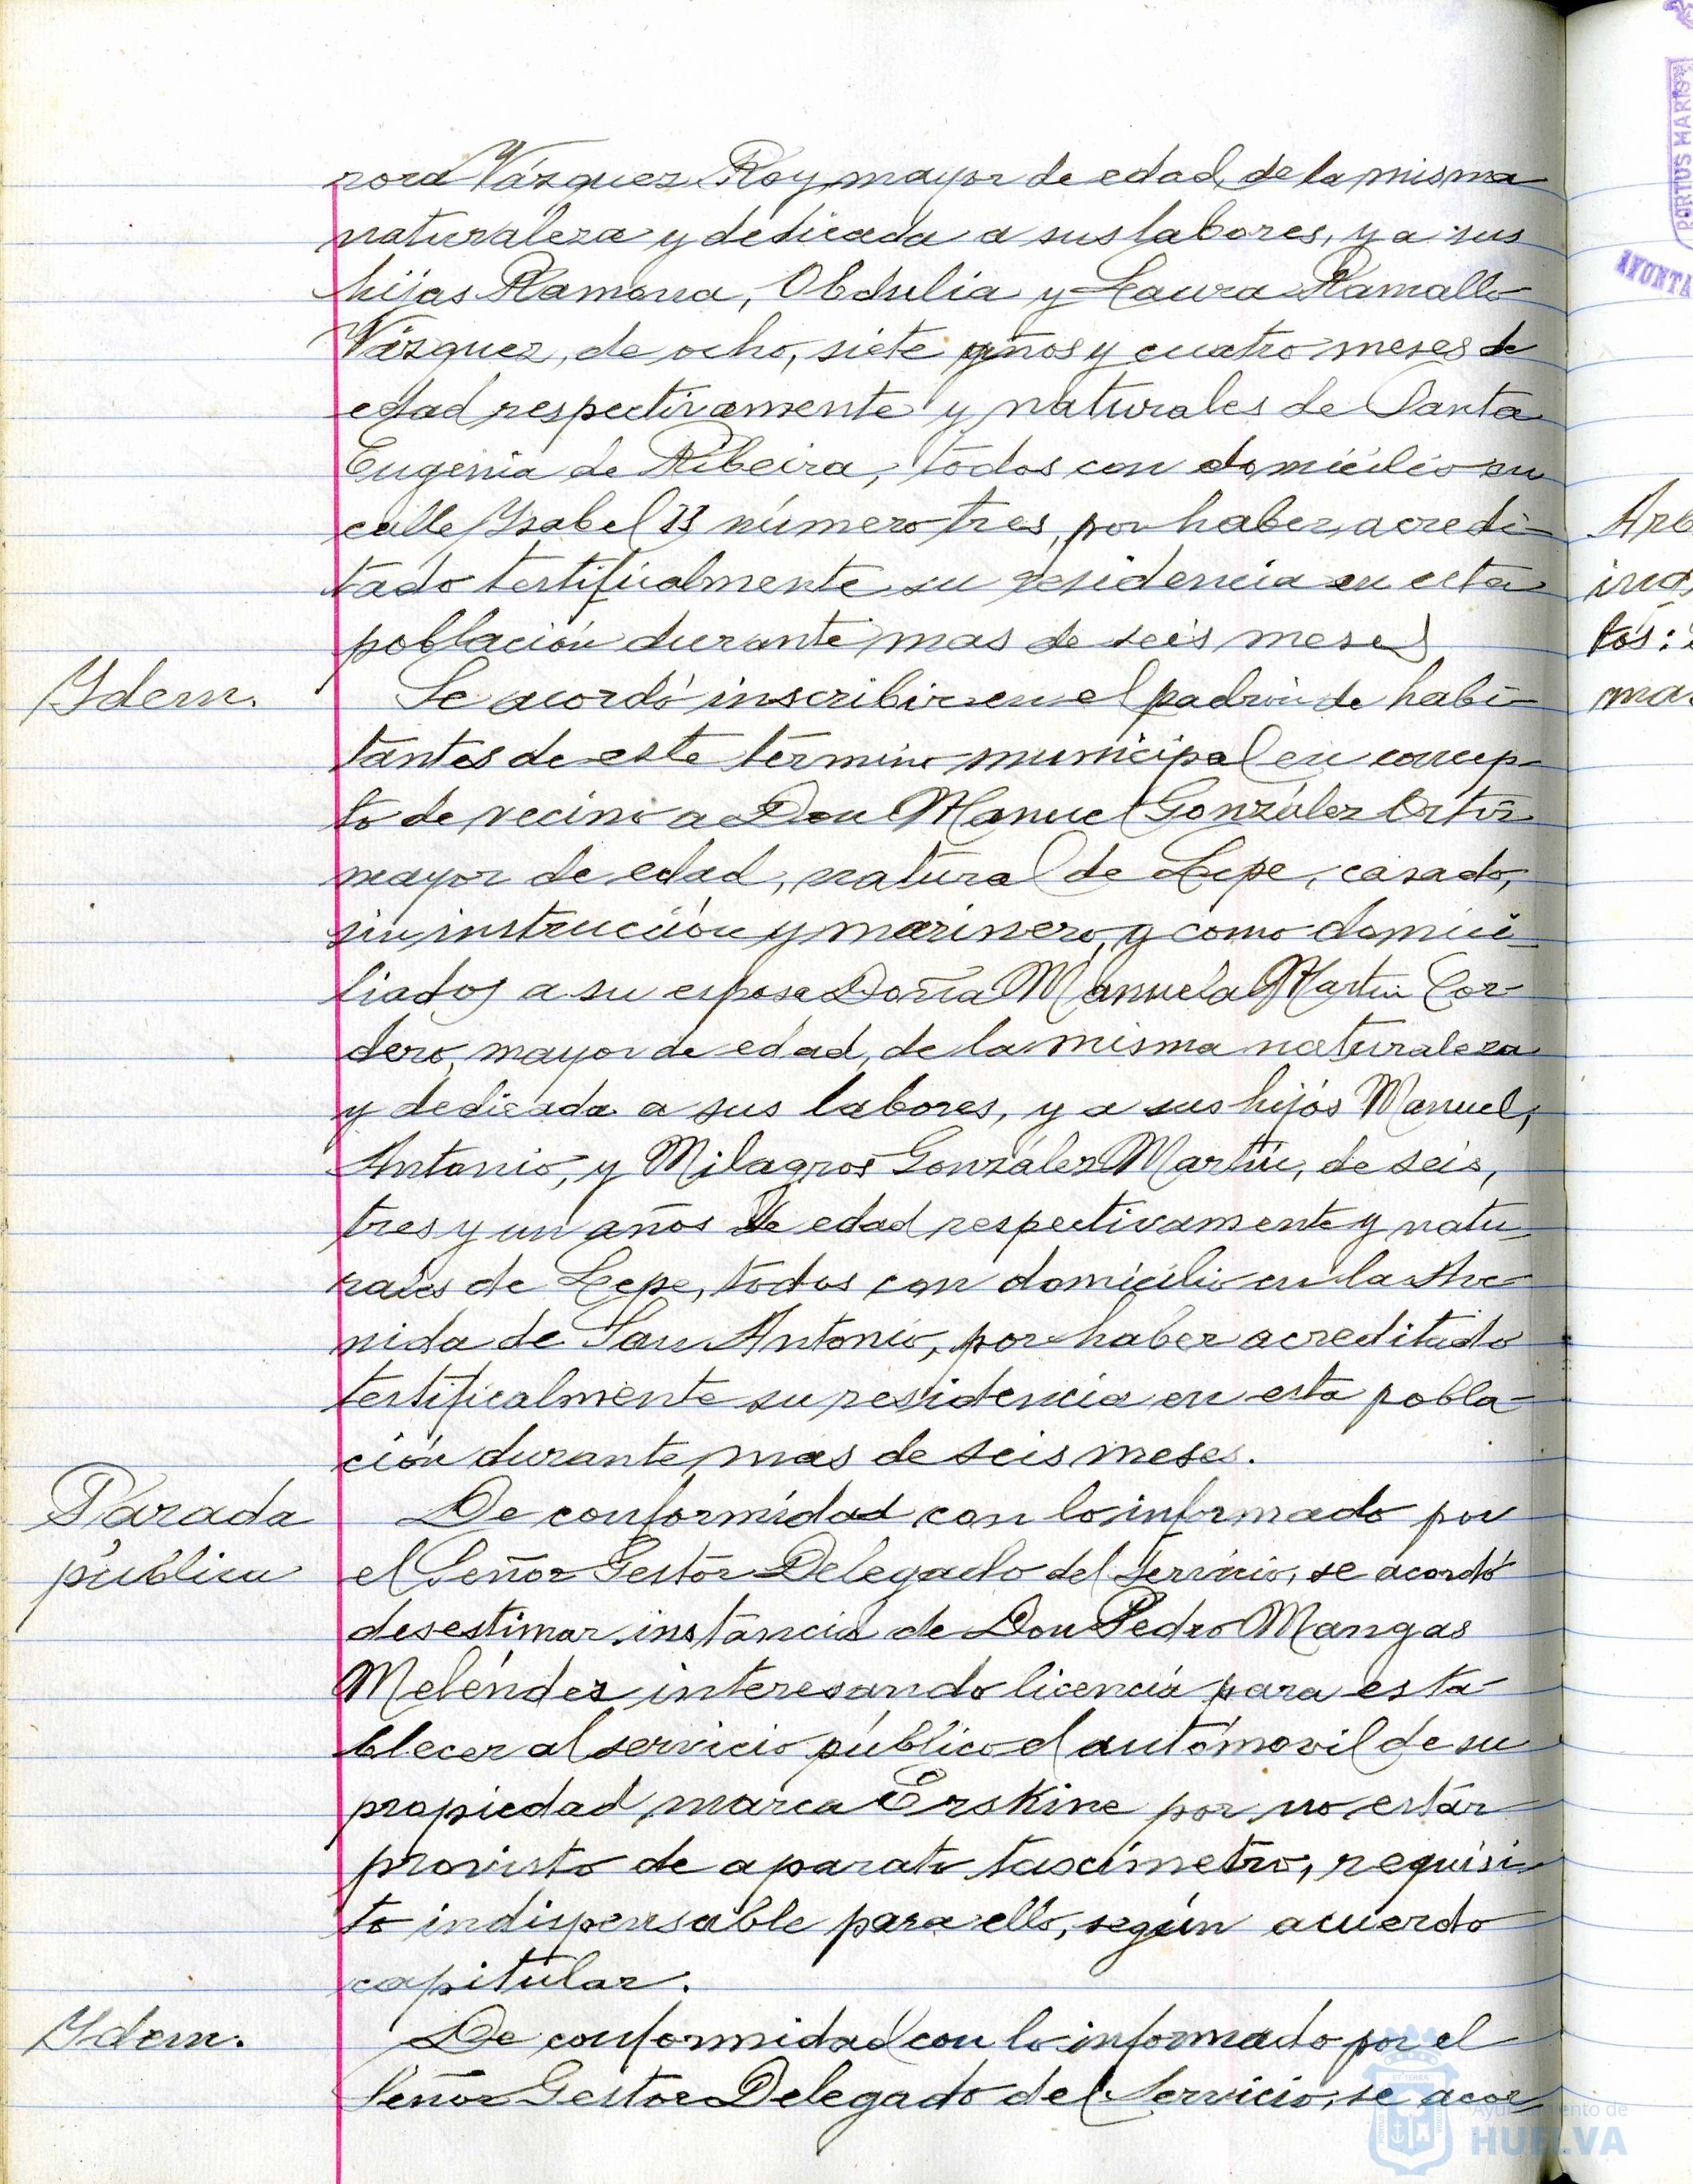 nora Vázquez Roy mayor de edad, de la misma
naturaleza y dedicada a sus labores, y a sus
hijas Ramona, Obdulia y Laura Ramallo
Vázquez, de ocho, siete años y cuatro meses de
edad respectivamente y naturales de Santa
Eugenia de Ribeira, todos con domicilio en
calle Ysabel II número tres, por haber acredi-
tado testificalmente su residencia en esta
población durante mas de seis meses
Ydem.
Se acordó inscribir en el padrón de habi-
tantes de este término municipal en concep-
to de vecino a Don Manuel González
mayor de edad, natural de Lepe, casado,
sin instrucción y marinero, y como domici-
liados a su esposa Doña Manuela Martin Cor-
dero, mayor de edad, de la misma naturaleza
y dedicada a sus labores, y a sus hijos Manuel,
Antonio, y Milagros González Martín, de seis,
tres y un años de edad respectivamente y natu-
rales de Lepe, todos con domicilio en la Ave-
nida de San Antonio, por haber acreditado
testificalmente su residencia en esta pobla-
ción durante mas de seis meses.
Parada
pública
De conformidad con lo informado por
el Señor Gestor Delegado del Servicio, se acordó
desestimar instancia de Don Pedro Mangas
Meléndez interesando licencia para esta-
blecer al servicio público el automovil de su
propiedad marca Erskine por no estar
provisto de aparato taxímetro, requisi-
to indispensable para ello, según acuerdo
capitular.
Ydem.
De conformidad con lo informado por el
Señor Gestor Delegado del Servicio, se acor
PORTUS MARIS
AYUNTA
Arb
tos:
ma
Ayuntamiento de
HUELVA